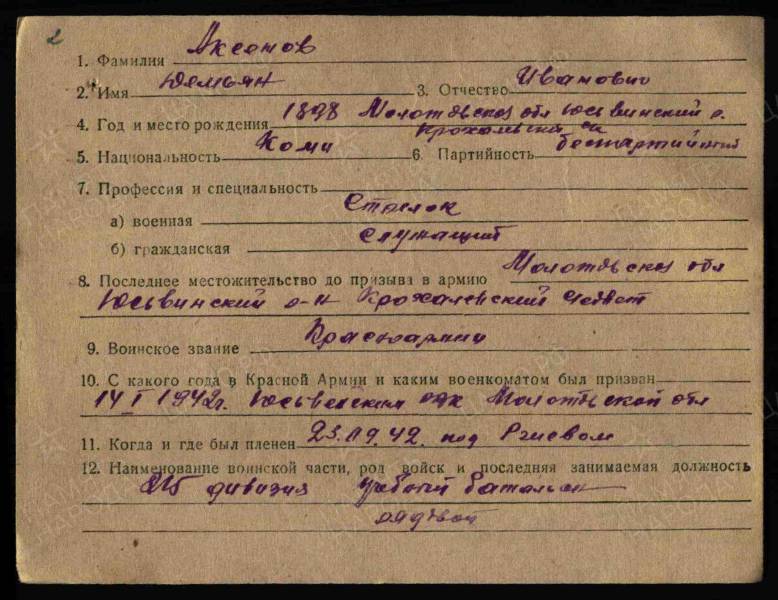 2
1. Фамилия Аксенов
2. Имя Демьян 3. Отчество Иванович
4. Год и место рождения 1898 Молотовская обл Юсьвинский р.
Крохалевский с/с
5. Национальность Коми 6. Партийность беспартийный
7. Профессия и специальность
а) военная Стрелок
б) гражданская Служащий
8. Последнее местожительство до призыва в армию Молотовская обл
Юсьвинский р-н Крохалевский Совет
9. Воинское звание Красноармеец
10. С какого года в Красной Армии и каким военкоматом был призван
14 I 1942г. Юсьвенским рвк Молотовской обл
11. Когда и где был пленен 23.09.42. под Ржевом
12. Наименование воинской части, род войск и последняя занимаемая должность
215 дивизия батальон
рядовой